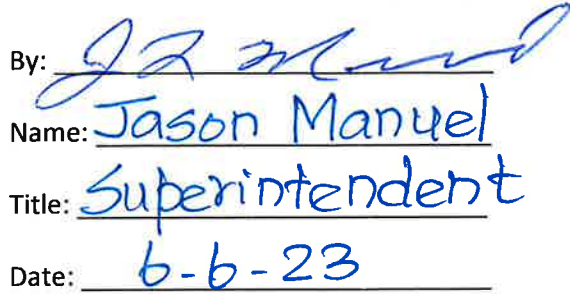 By:
Name: Jason Manuel
Title: Superintendent
Date: 6-6-23